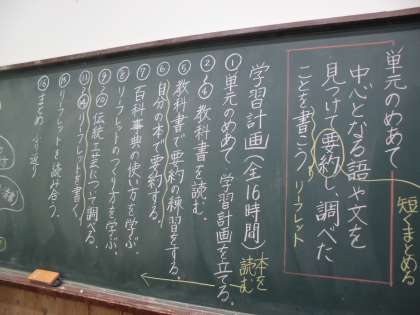 単元のめあて
中心となる語や文を
見つけて要約し、調べた
ことを書こう。
リーフレット
短くまとめる
学習計画(全16時間)
① 単元のめあて 学習計画を立てる。
②〜④ 教科書を読む。
本を読む
⑤ 教科書で要約の練習をする。
⑥ 自分の本で要約する。
⑦ 百科事典の使い方を学ぶ。
⑧ リーフレットのつくり方を学ぶ。
伝統工芸について調べる。
リーフレットを書く。
⑮ リーフレットを読み合う。
⑯ まとめ ふり返り